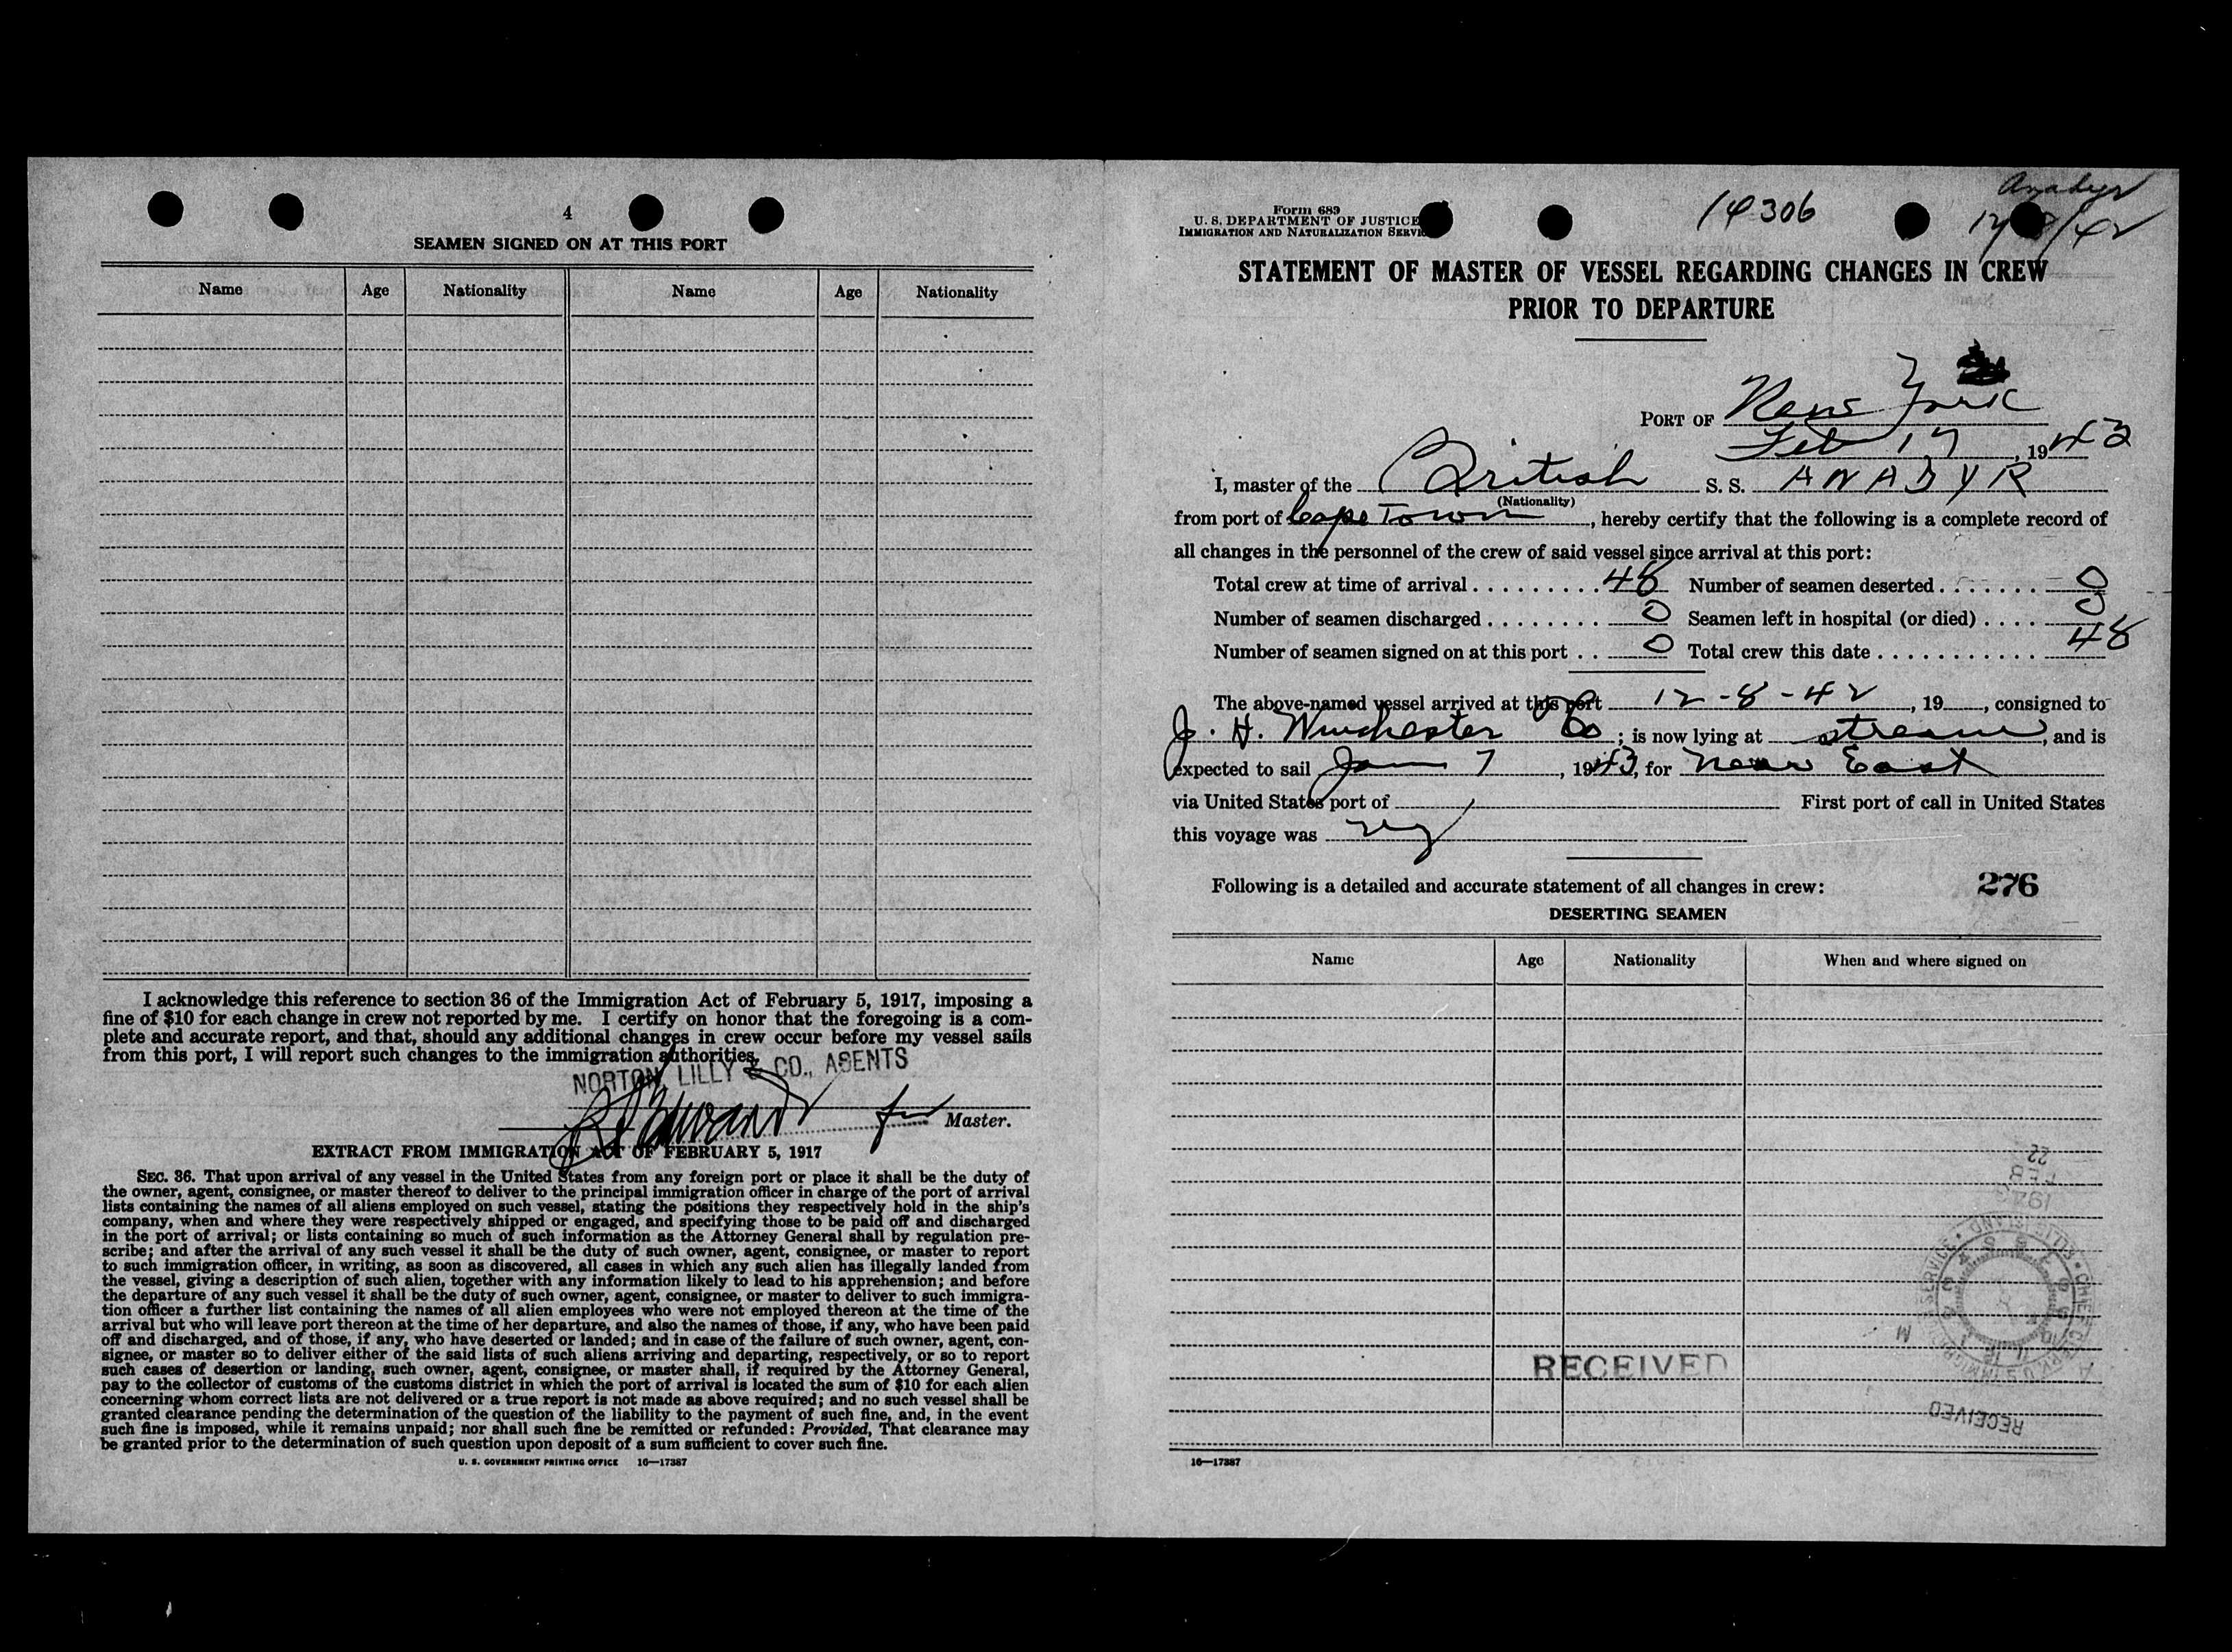 4
SEAMEN SIGNED ON AT THIS PORT
Name Age Nationality Name Age Nationality
I acknowledge this reference to section 36 of the Immigration Act of February 5, 1917, imposing a
fine of $10 for each change in crew not reported by me. I certify on honor that the foregoing is a com-
plete and accurate report, and that, should any additional changes in crew occur before my vessel sails
from this port, I will report such changes to the immigration authorities.
NORTON, LILLY & CO., AGENTS
for Master.
EXTRACT FROM IMMIGRATION ACT OF FEBRUARY 5, 1917
SEC. 36. That upon arrival of any vessel in the United States from any foreign port or place it shall be the duty of
the owner, agent, consignee, or master thereof to deliver to the principal immigration officer in charge of the port of arrival
lists containing the names of all aliens employed on such vessel, stating the positions they respectively hold in the ship's
company, when and where they were respectively shipped or engaged, and specifying those to be paid off and discharged
in the port of arrival; or lists containing so much of such information as the Attorney General shall by regulation pre-
scribe; and after the arrival of any such vessel it shall be the duty of such owner, agent, consignee, or master to report
to such immigration officer, in writing, as soon as discovered, all cases in which any such alien has illegally landed from
the vessel, giving a description of such alien, together with any information likely to lead to his apprehension; and before
the departure of any such vessel it shall be the duty of such owner, agent, consignee, or master to deliver to such immigra-
tion officer a further list containing the names of all alien employees who were not employed thereon at the time of the
arrival but who will leave port thereon at the time of her departure, and also the names of those, if any, who have been paid
off and discharged, and of those, if any, who have deserted or landed; and in case of the failure of such owner, agent, con-
signee, or master so to deliver either of the said lists of such aliens arriving and departing, respectively, or so to report
such cases of desertion or landing, such owner, agent, consignee, or master shall, if required by the Attorney General,
pay to the collector of customs of the customs district in which the port of arrival is located the sum of $10 for each alien
concerning whom correct lists are not delivered or a true report is not made as above required; and no such vessel shall be
granted clearance pending the determination of the question of the liability to the payment of such fine, and, in the event
such fine is imposed, while it remains unpaid; nor shall such fine be remitted or refunded: Provided, That clearance may
be granted prior to the determination of such question upon deposit of a sum sufficient to cover such fine.
U. S. GOVERNMENT PRINTING OFFICE 16—17387
Form 689
U. S. DEPARTMENT OF JUSTICE
IMMIGRATION AND NATURALIZATION SERVI
14306
Anadyr
12/8/42
STATEMENT OF MASTER OF VESSEL REGARDING CHANGES IN CREW
PRIOR TO DEPARTURE
PORT OF New York
Feb 17, 1943
I, master of the British S. S. ANADYR
(Nationality)
from port of Cape Town, hereby certify that the following is a complete record of
all changes in the personnel of the crew of said vessel since arrival at this port:
Total crew at time of arrival 48 Number of seamen deserted 0
Number of seamen discharged 0 Seamen left in hospital (or died) 0
Number of seamen signed on at this port 0 Total crew this date 48
The above-named vessel arrived at this port 12-8-42, 19, consigned to
J. H. Winchester Co; is now lying at stream, and is
expected to sail Jan 7, 1943, for Near East
via United States port of First port of call in United States
this voyage was ny
Following is a detailed and accurate statement of all changes in crew:
276
DESERTING SEAMEN
Name Age Nationality When and where signed on
22
FEB
1943
RECEIVED
RECEIVED
16—17387